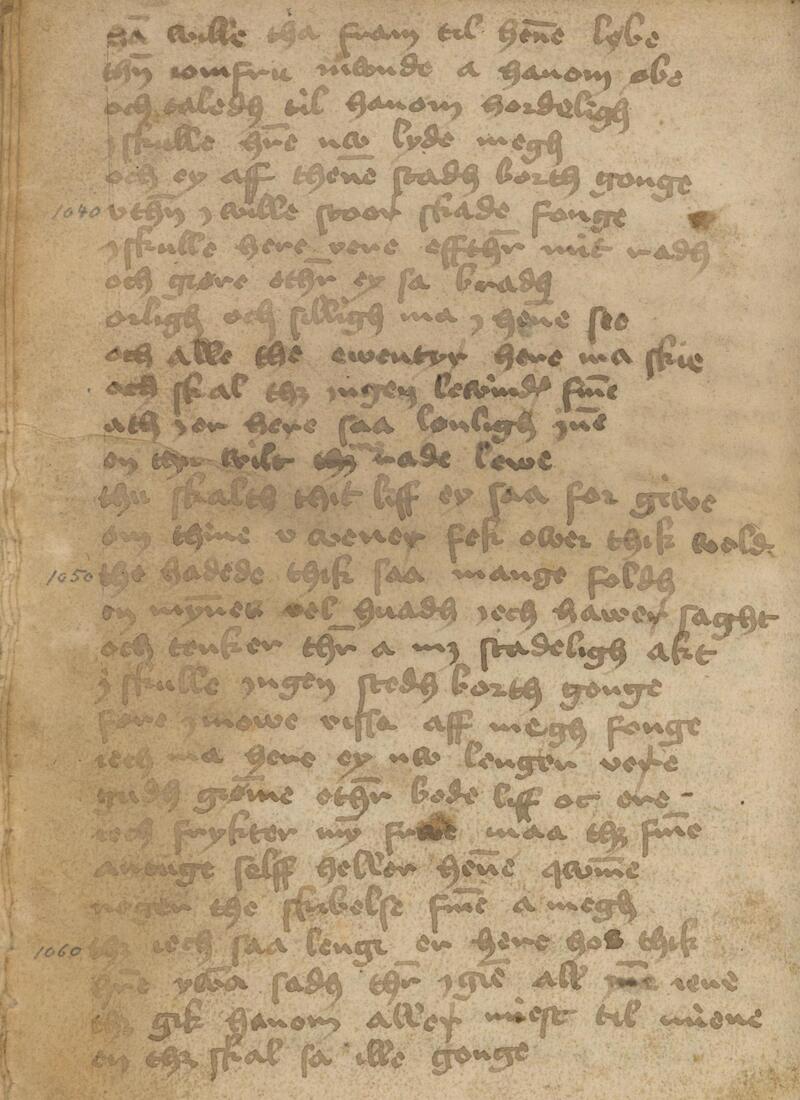 hā wille tha fram til hēne løbe
thn̄ iomfru mwnde a hanom øbe
och taledh til hanom hordeligh
j skulle hr̄e nw lyde megh
och ey aff thēne stadh borth gonge
1040 vthn̄ j wille stoor skade fonge
j skulle here vere effthr̄ mit radh
och giøre ethr̄ ey sa bradh
orligh och silligh ma j hēne see
och alle the ewentyr here ma skie
och skal thz ingen lewinde fīne
ath jer here saa lønligh jn̄e
en thn̄ wilt thn̄ rade lewe
thu skalth thit liff ey saa for giwe
om thine v wener fek ower thik wold
1050 the hadede thik saa mange foldh
en mȳnes vel huadh iech hawer saght
och tenker thr̄ a mz stadeligh akt
j skulle jngen stedh borth gonge
føre j mowe vissa aff megh fonge
iech ma here ey nw lenger vere
gudh giøm̄e ethr̄ bode liff oc ere
iech frykter mȳ frwe maa thz fīne
arenge selff heller hēne qwīne
nogen the skubelse fīne a megh
1060 thz iech saa lenge er here hos thik
hr̄e ywā sadh thr̄ igīe all mn̄e iene
thz gik hanom aller miest til miene
en thz skal sa ille gonge